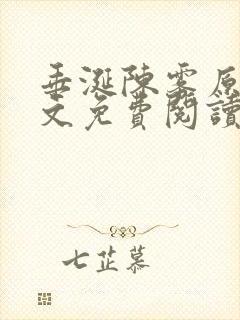 垂涎陳雾原
文免費閱讀
七芷慕